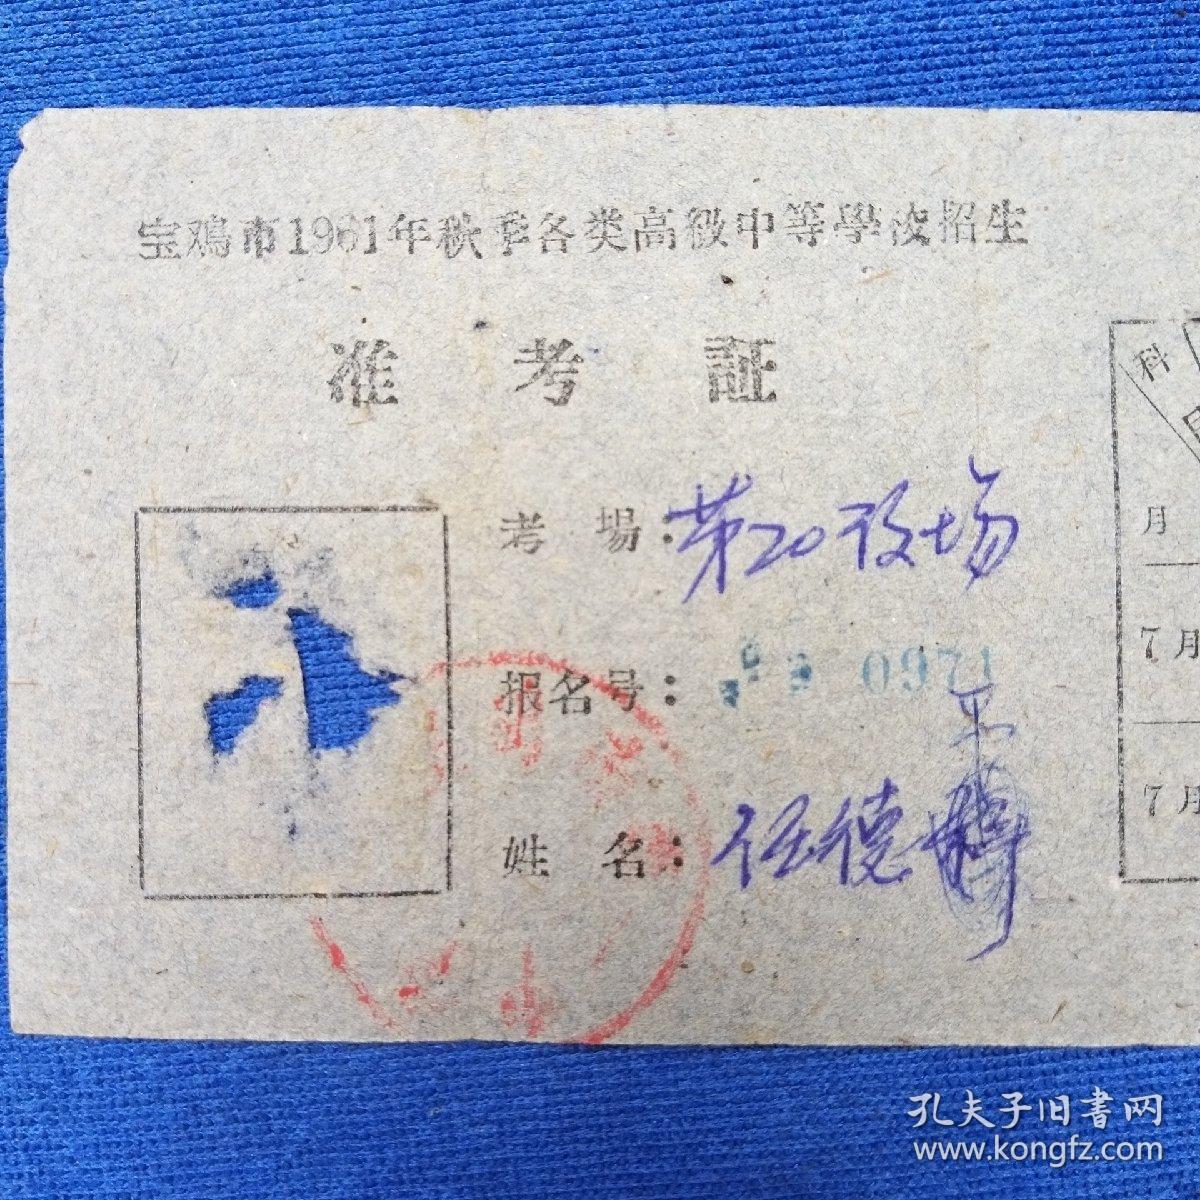 宝鸡市1961年秋季各类高级中等學校招生
准考証
考場：第20考场
报名号： 0971
姓名：任德
平
科
目
月
7月
7月
孔夫子旧書网
www.kongfz.com